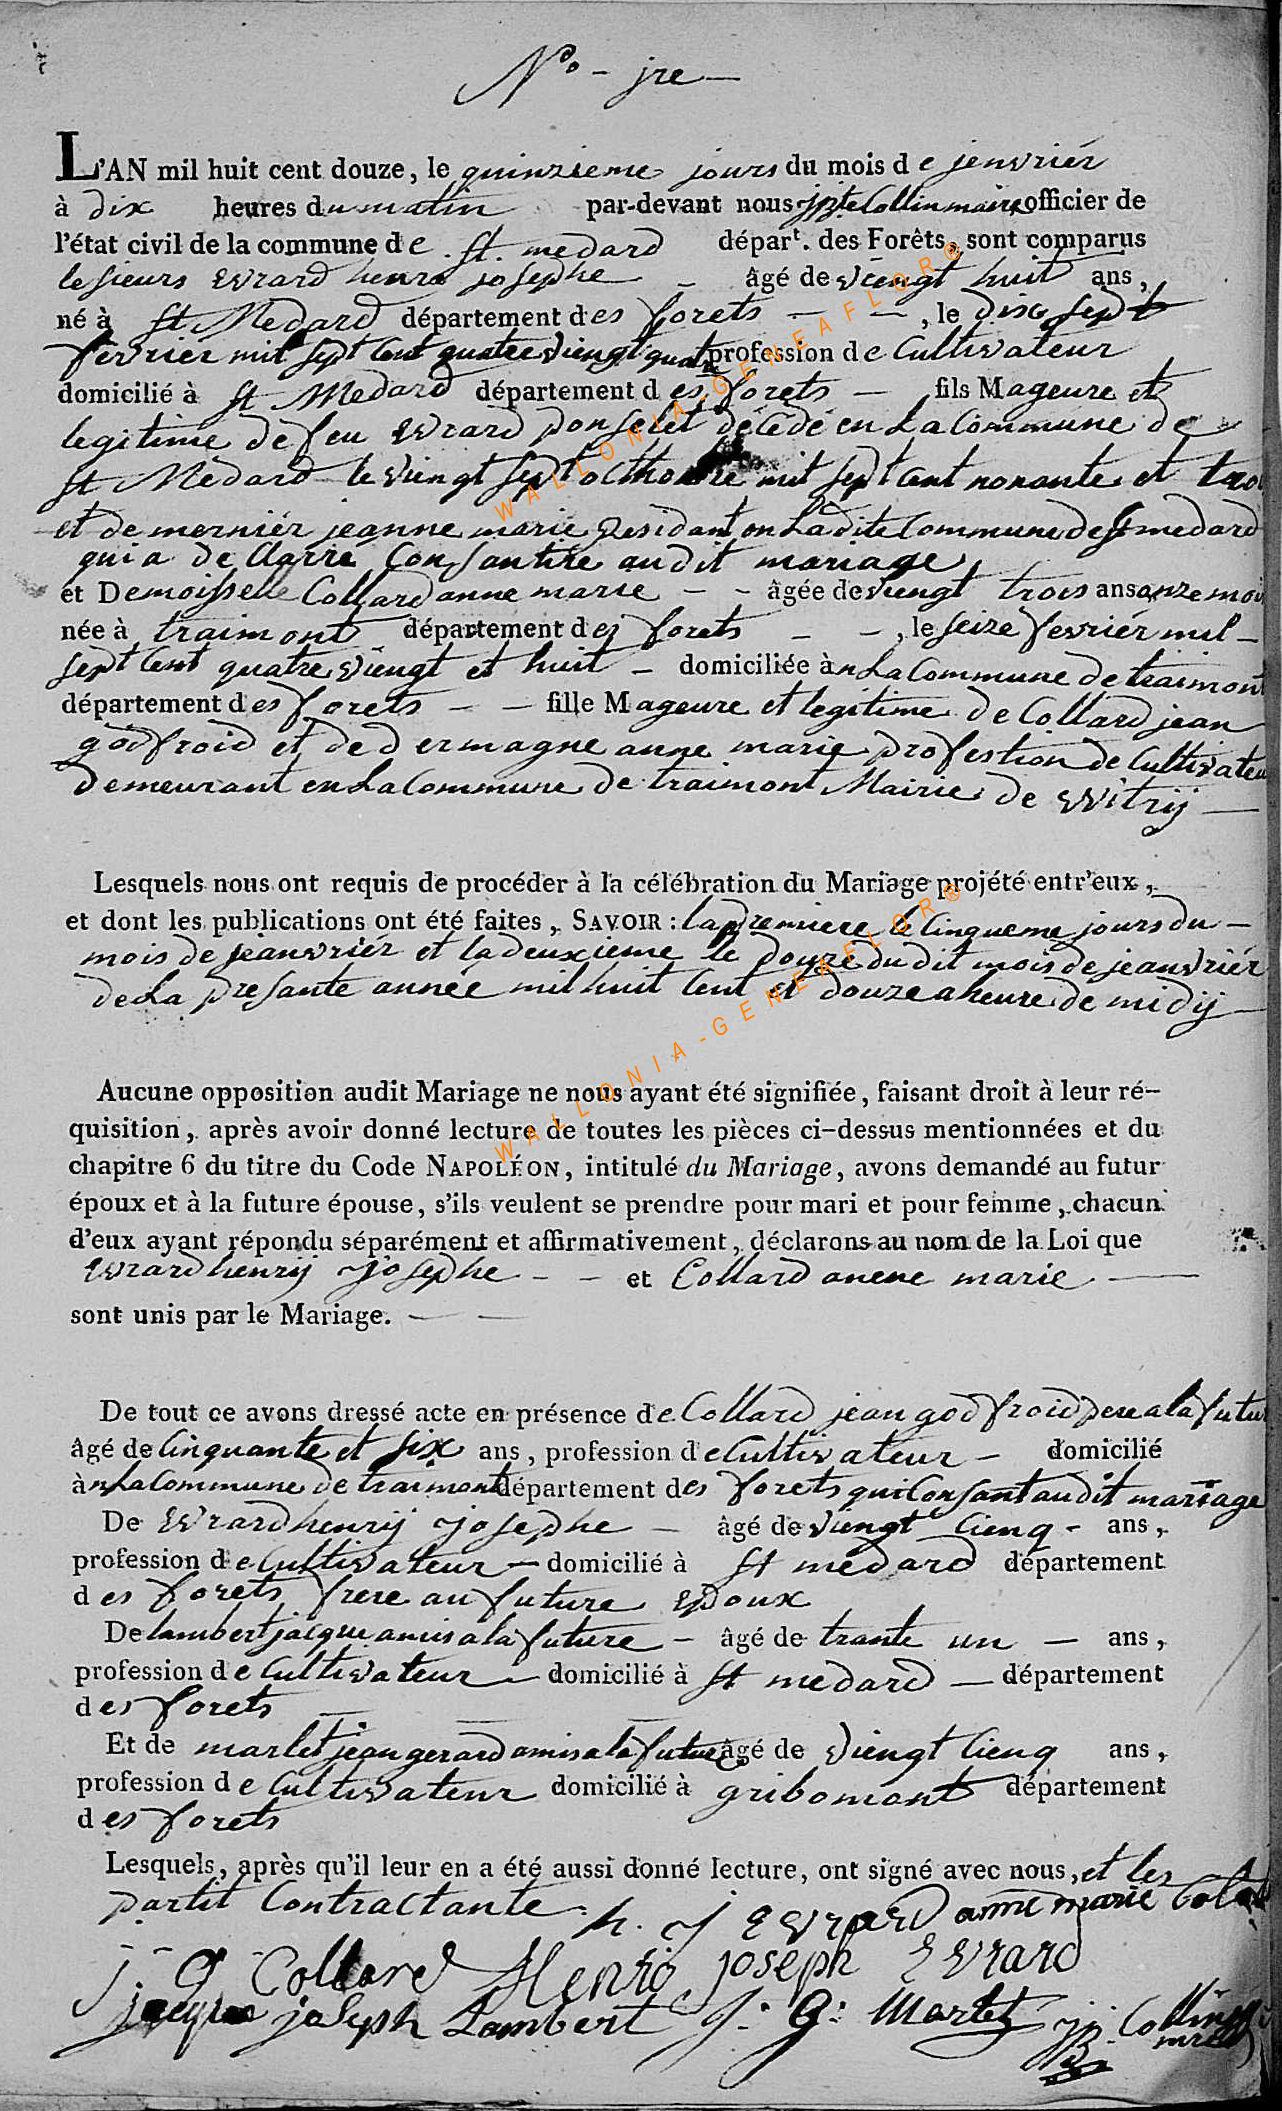 No - jre -
L'AN mil huit cent douze, le quinzieme jours du mois de jenvriér
à dix heures du matin par-devant nous Collin maire officier de
l'état civil de la commune de St. medard dépar.t des Forêts, sont comparus
le sieurs Evrard henri josephe - âgé de viengt huit ans,
né à St Medard département des forets - - , le dix sept
fevriér mil sept cent quatre viengt quatre profession de Cultivateur
domicilié à St Medard département des forets - fils Mageure et
legitime de feu Evrard ponselet décédé en La Commune de
St Médard le viengt sept octhobre mil sept cent nonante et troi
et de merniér jeanne marie Residant en Ladite Commune de St medard
qui a de Clarré Consantire audit mariage
et Demoisselle Collard anne marie - - âgée de viengt trois ans onze moi
née à traimont département des forets - - , le seize fevriér mil -
sept Cent quatre viengt et huit - domiciliée àn La Commune de traimont
département des forets - - fille Mageure et legitime de Collard jean
godfroid et de dermagne anne marie profestion de Cultivateu
demeurant en La Commune de traimont Mairie de Witrij -
Lesquels nous ont requis de procéder à la célébration du Mariage projété entr'eux,
et dont les publications ont été faites, SAVOIR : la premiere le Cinqueme jours du -
mois de jeanvriér et la deuxieme le douze du dit mois de jeanvriér
de La presante année mil huit Cent et douze a heure de midij
Aucune opposition audit Mariage ne nous ayant été signifiée, faisant droit à leur ré-
quisition, après avoir donné lecture de toutes les pièces ci-dessus mentionnées et du
chapitre 6 du titre du Code NAPOLÉON, intitulé du Mariage, avons demandé au futur
époux et à la future épouse, s'ils veulent se prendre pour mari et pour femme, chacun
d'eux ayant répondu séparément et affirmativement, déclarons au nom de la Loi que
Evrard henrij josephe - - et Collard anene marie -
sont unis par le Mariage. - -
De tout ce avons dressé acte en présence de Collard jean godfroid pere a la futur
âgé de Cinquante et six ans, profession de Cultivateur - domicilié
àn La Commune de traimont département des forets qui Consant audit mariage
De Evrard henrij josephe - âgé de viengt Cienq - ans,
profession de Cultivateur - domicilié à St medard département
des forets frere au future Epoux
De lambert jacque amis a la future - âgé de trante un - ans,
profession de Cultivateur - domicilié à St medard - département
des forets
Et de marlet jean gerard amis a la future âgé de viengt Cienq ans,
profession de Cultivateur domicilié à gribomont département
des forets
Lesquels, après qu'il leur en a été aussi donné lecture, ont signé avec nous, et les
partit Contractante.
h. j Evrard anne marie Colar
j. G Collard Henrij joseph Evrard
jacque joseph Lambert j: G: Marlet jj. Collin
WALLONIA-GENEAFLOR®
WALLONIA-GENEAFLOR®